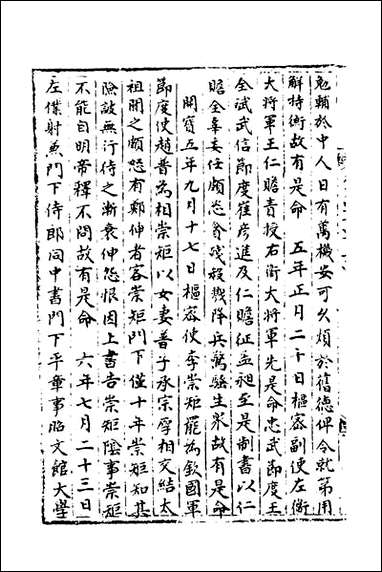 勉輔於中人日有萬機安可久煩於舊德俾令就第用
解持衡故有是命　五年正月二十日樞密副使左衛
大將軍王仁贍責授右衛大將軍先是命忠武節度王
全斌武信節度崔彥進及仁贍征孟昶至是制書以仁
贍全辜委任頗恣貪殘殺戮降兵驚騷生衆故有是命
　開寶五年九月十七日樞密使李崇矩罷為鎮國軍
節度使趙普為相崇矩以女妻普子承宗厚相交結太
祖聞之頗怒有鄭伸者客崇矩門下僅十年崇矩知其
險詖無行待之漸衰伸怨恨因上書告崇矩陰事崇矩
不能自明帝釋不問故有是命　六年七月二十三日
左僕射兼門下侍郎同中書門下平章事昭文館大學